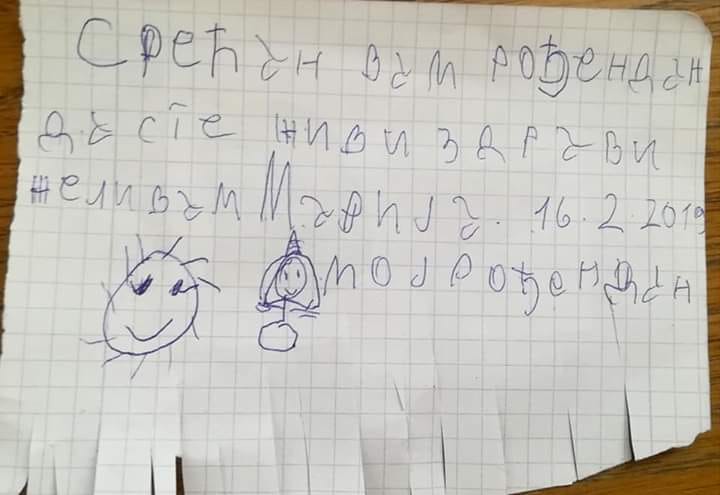 Срећан вам рођендан
да сте живи здрави
жели вам Марија. 16.2.2019
мој рођендан